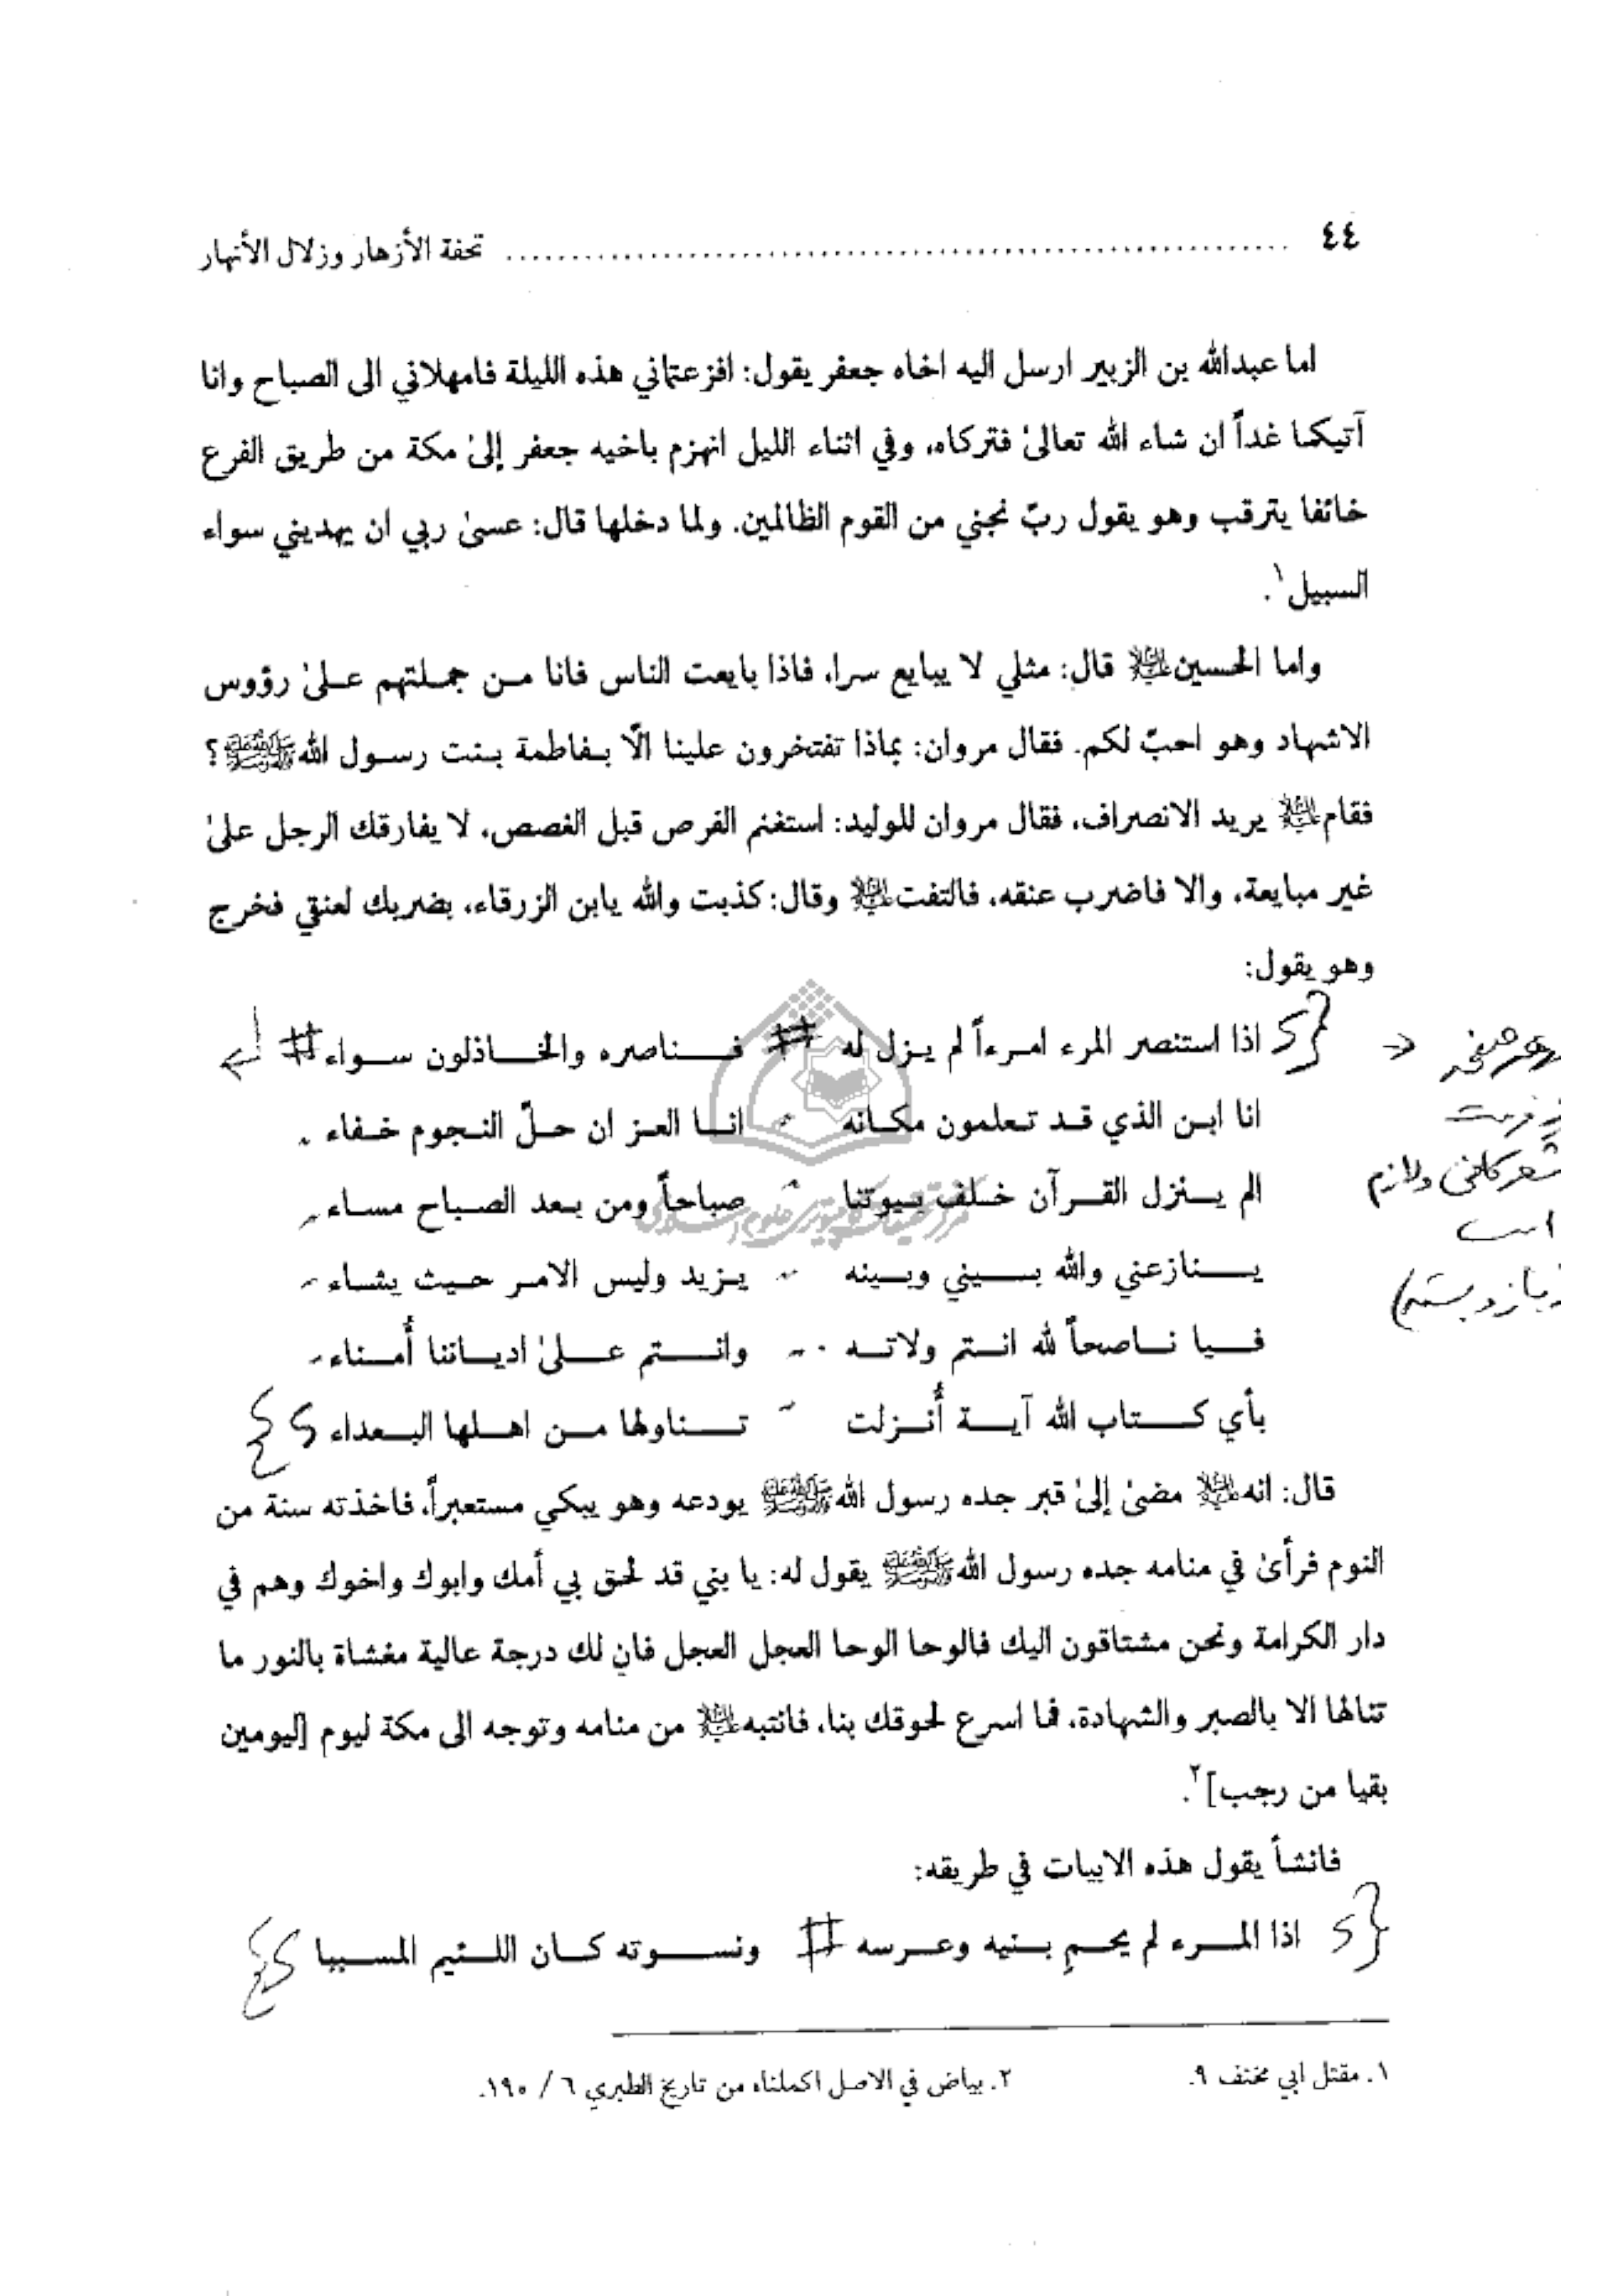 ٤٤ ........ تحفة الأزهار وزلال الأنهار
اما عبدالله بن الزبير ارسل اليه اخاه جعفر يقول: افزعتماني هذه الليلة فامهلاني الى الصباح وانا
آتيكما غداً ان شاء الله تعالىٰ فتركاه، وفي اثناء الليل انهزم باخيه جعفر إلىٰ مكة من طريق الفرع
خائفا يترقب وهو يقول ربّ نجني من القوم الظالمين. ولما دخلها قال: عسىٰ ربي ان يهديني سواء
السبيل١.
واما الحسين عليه السلام قال: مثلي لا يبايع سرا، فاذا بايعت الناس فانا من جملتهم علىٰ رؤوس
الاشهاد وهو احبّ لكم. فقال مروان: بماذا تفتخرون علينا الّا بفاطمة بنت رسول الله ﷺ؟
فقام عليه السلام يريد الانصراف، فقال مروان للوليد: استغنم الفرص قبل الغصص، لا يفارقك الرجل علىٰ
غير مبايعة، والا فاضرب عنقه، فالتفت عليه السلام وقال: كذبت والله يابن الزرقاء، بضربك لعنقي فخرج
وهو يقول:
اذا استنصر المرء امرءاً لم يزل له # فناصره والخاذلون سواء #
انا ابن الذي قد تعلمون مكانه انا العز ان حلّ النجوم خفاء
الم ينزل القرآن خلف بيوتنا صباحاً ومن بعد الصباح مساء
ينازعني والله بيني وبينه يزيد وليس الامر حيث يشاء
فيا ناصحاً لله انتم ولاته وانتم علىٰ ادياننا أُمناء
بأي كتاب الله آية أُنزلت تناولها من اهلها البعداء
قال: انه عليه السلام مضىٰ إلىٰ قبر جده رسول الله ﷺ يودعه وهو يبكي مستعبراً، فاخذته سنة من
النوم فرأىٰ في منامه جده رسول الله ﷺ يقول له: يا بني قد لحق بي أمك وابوك واخوك وهم في
دار الكرامة ونحن مشتاقون اليك فالوحا الوحا العجل العجل فان لك درجة عالية مغشاة بالنور ما
تنالها الا بالصبر والشهادة، فما اسرع لحوقك بنا، فانتبه عليه السلام من منامه وتوجه الى مكة ليوم [ليومين
بقيا من رجب]٢.
فانشأ يقول هذه الابيات في طريقه:
اذا المرء لم يحمِ بنيه وعرسه # ونسوته كان اللئيم المسببا
١. مقتل ابي مخنف ٩. ٢. بياض في الاصل اكملناه من تاريخ الطبري ٦ / ١٩٠.
شعر كافى ولازم
است